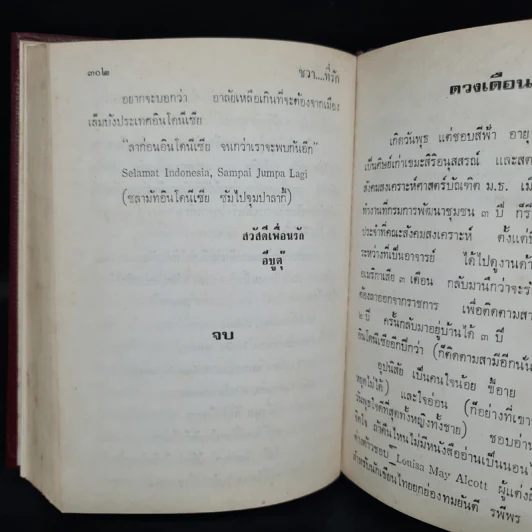 ๓๐๒
ชวา....ที่รัก
อยากจะบอกว่า อาลัยเหลือเกินที่จะต้องจากเมือง
เล็มบังประเทศอินโดนีเซีย
"ลาก่อนอินโดนีเซีย จนกว่าเราจะพบกันอีก"
Selamat Indonesia, Sampai Jumpa Lagi
(ซลามัทอินโดนีเซีย ซัมไปจุมปาลากี้)
สวัสดีเพื่อนรัก
อีบูตุ๊
จบ
ดวงเดือน
เกิดวันพุธ แต่ชอบสีฟ้า อายุ
เป็นศิษย์เก่าเขมะสิริอนุสสรณ์ และสต
สังคมสงเคราะห์ศาสตร์บัณฑิต ม.ธ. เมื
ทำงานที่กรมการพัฒนาชุมชน ๓ ปี ก็
ประจำที่คณะสังคมสงเคราะห์ ตั้งแต่
ระหว่างที่เป็นอาจารย์ ได้ไปดูงานด้
อเมริกาเสีย ๓ เดือน กลับมานึกว่าจะ
ต้องลาออกจากราชการ เพื่อติดตามสา
๒ ปี ครั้นกลับมาอยู่บ้านได้ ๓ ปี
อินโดนีเซียอีกปีกว่า (ก็ติดตามสามีอีกนั่น
อุปนิสัย เป็นคนใจน้อย ขี้อาย
หยุดไม่ได้) และใจอ่อน (ก็อย่างที่เขา
วันพุธใจดีที่สุดทั้งหญิงทั้งชาย) ชอบอ่าน
จิตใจ ถ้าคืนไหนไม่มีหนังสืออ่านเป็นนอน
ต่างด้าวชอบ Louisa May Alcott ผู้แต่ง
สำหรับนักเขียนไทยยกย่องทมยันตี รพีพร